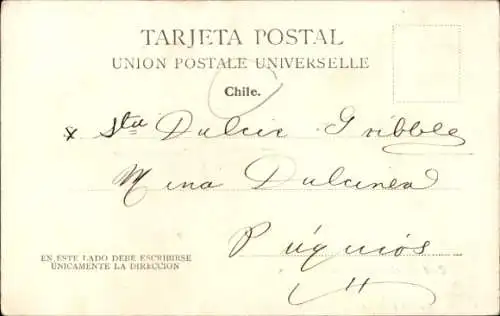 TARJETA POSTAL
UNION POSTALE UNIVERSELLE
Chile.
x Sta Dulcie Gribble
Mina Dulcinea
Púquios
EN ESTE LADO DEBE ESCRIBIRSE
ÚNICAMENTE LA DIRECCION